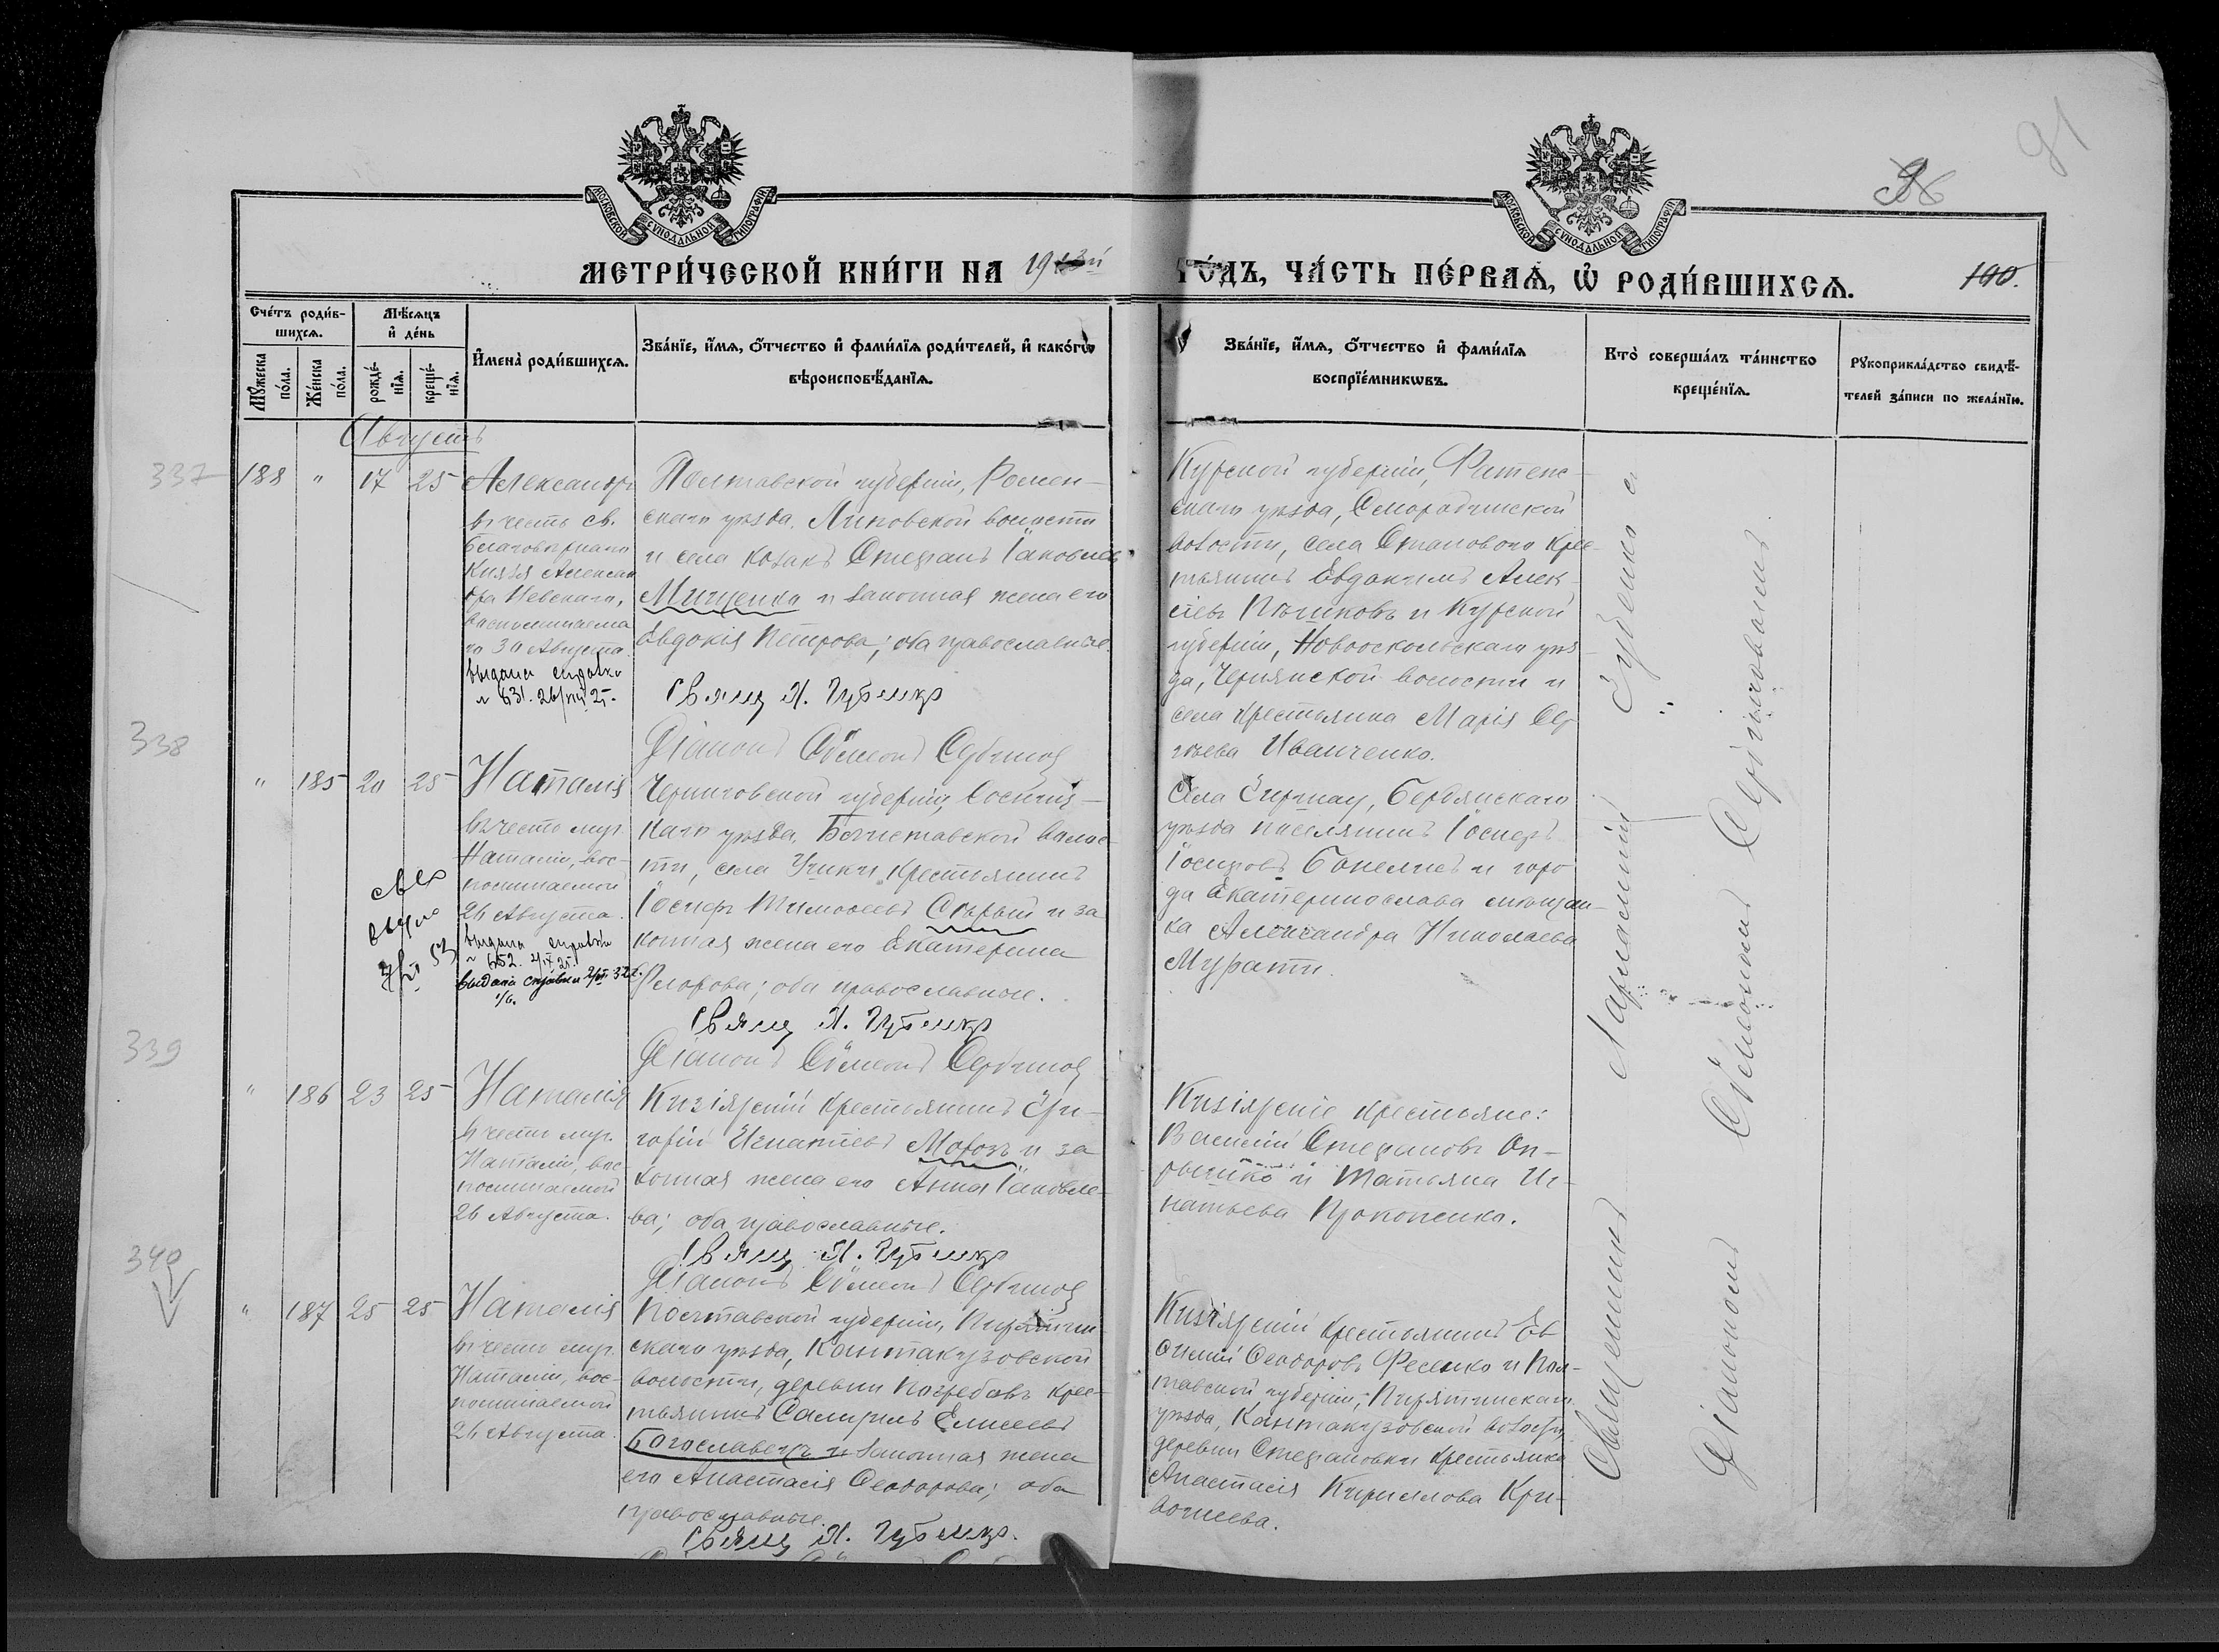 91
96
МОСКОВСКОЙ СѴНОДАЛЬНОЙ ТИПОГРАФІИ
МОСКОВСКОЙ СѴНОДАЛЬНОЙ ТИПОГРАФІИ
МЕТРИ́ЧЕСКОЙ КНИ́ГИ НА 1913й ГО́ДЪ, ЧА́СТЬ ПЕ́РВАѦ, Ѡ РОДИ́ВШИХСѦ.
190.
Сче́тъ роди́в-
шихсѧ.
Мꙋжеска по́ла.
Же́нска по́ла.
Мѣ́сѧцъ
и́ де́нь
рожде́-нїѧ.
креще́-нїѧ.
И҆мена̀ роди́вшихсѧ.
Зва́нїе, и҆́мѧ, ѻ҆́тчество и҆ фами́лїѧ роди́телей, и҆ како́гѡ
вѣроисповѣ́данїѧ.
Зва́нїе, и҆́мѧ, ѻ҆́тчество и҆ фами́лїѧ
воспрїе́мникѡвъ.
Кто̀ соверша́лъ та́инство
креще́нїѧ.
Рꙋкоприкла́дство свидѣ́-
телей за́писи по жела́нїю.
Августъ
337
188 " 17 25
Александръ
въ честь св.
благовѣрнаго
Князя Алексан
дра Невскаго,
воспоминаема
го 30 Августа.
выдана справка
Полтавской губерніи, Ромен-
скаго уѣзда, Липовской волости
и села козакъ Стефанъ Іаковлевъ
Мищенко и законная жена его
Евдокія Петрова; оба православные.
Свящ. Л. Губенко
Діаконъ Сѵмеонъ
Курской губерніи, Фатеж-
скаго уѣзда, Смородинской
волости, села Станового крес-
тьянинъ Евдокимъ Алек-
сіевъ и Курской
губерніи, Новооскольскаго уѣз-
да, Чернянской волости и
села крестьянка Марія Сер-
гѣева Иванченко.
338
" 185 20 25
Наталія
въ честь муч.
Наталіи, вос-
поминаемой
26 Августа.
выдана справка
выдана справка
Черниговской губерніи, Сосниц-
каго уѣзда, волос-
ти, села крестьянинъ
Іосифъ Тимоѳеевъ Сѣрый и за
конная жена его Екатерина
Флорова; оба православные.
Свящ. Л. Губенко
Діаконъ Сѵмеонъ
Села Гиршау, Бердянскаго
уѣзда поселянинъ Іосифъ
Іосифовъ и горо
да Екатеринослава мѣщан-
ка Александра Николаева
Мурати.
339
" 186 23 25
Наталія
въ честь муч.
Наталіи, вос-
поминаемой
26 Августа.
Кизіярскій крестьянинъ Гри-
горій Игнатіевъ Морозъ и за
конная жена его Анна Іаковле-
ва; оба православные.
Свящ. Л. Губенко
Діаконъ Сѵмеонъ
Кизіярскіе крестьяне:
Василій Стефановъ Оп-
рышко и Татьяна Иг-
натьева Прокопенко.
340
" 187 25 25
Наталія
въ честь муч.
Наталіи, вос-
поминаемой
26 Августа.
Полтавской губерніи, Пирятин
скаго уѣзда, Кантакузовской
волости, деревни Погребовъ крес-
тьянинъ Самуилъ Елисеевъ
и законная жена
его Анастасія Ѳеодорова; оба
православные.
Свящ. Л. Губенко.
Кизіярскій крестьянинъ Ев
ѳимій Ѳеодоровъ Фесенко и Пол-
тавской губерніи, Пирятинскаго
уѣзда, Кантакузовской волости,
деревни Степановки крестьянка
Анастасія Кириллова Кри-
вошеева.
Священникъ Губенко съ
Діакономъ Сѵмеономъ